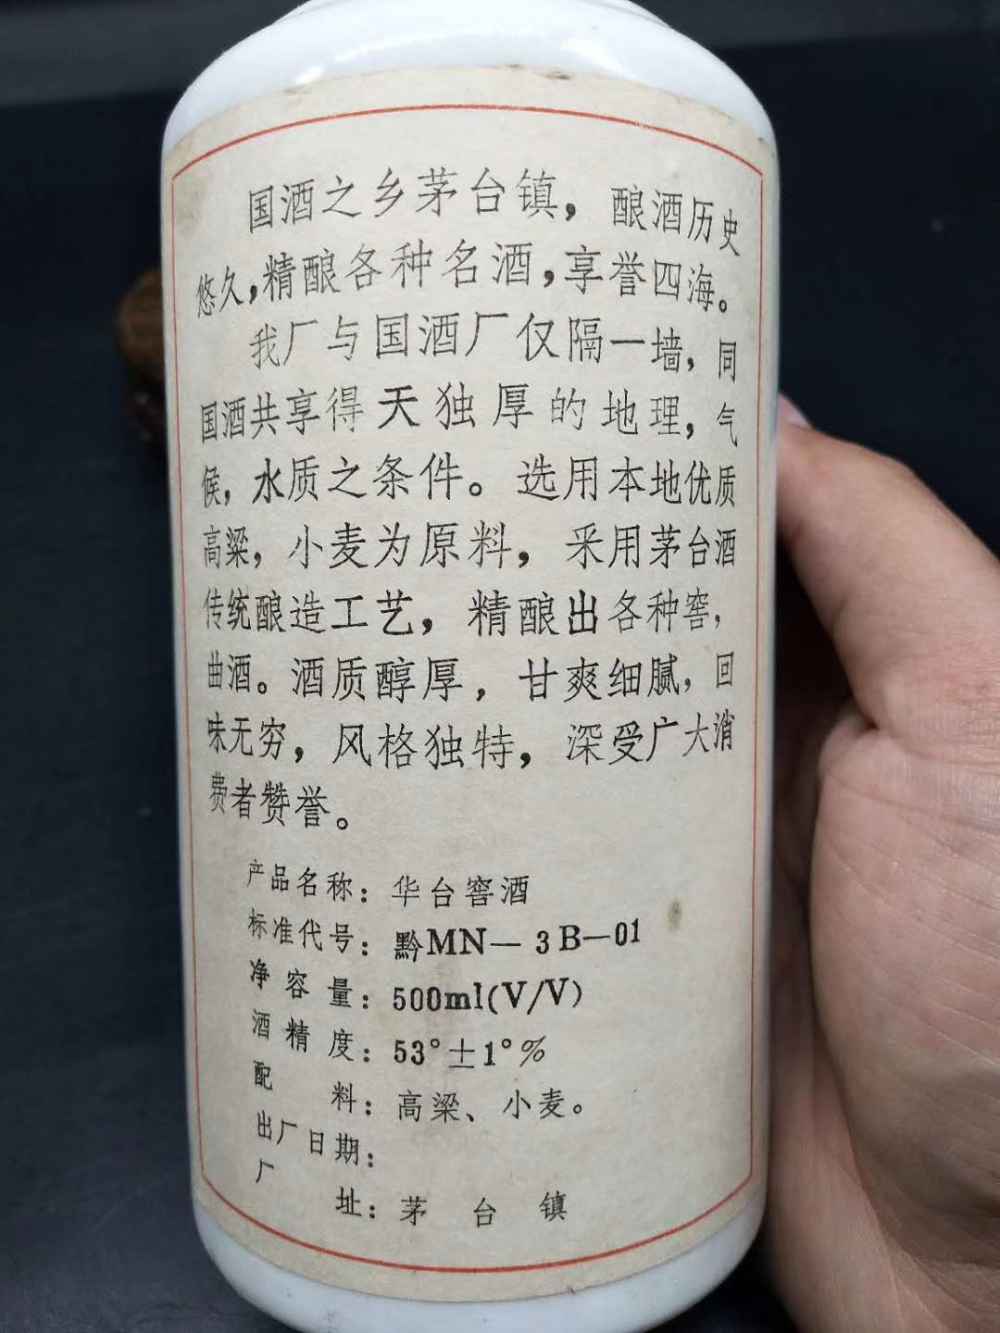 国酒之乡茅台镇，酿酒历史
悠久，精酿各种名酒，享誉四海。
我厂与国酒厂仅隔一墙，同
国酒共享得天独厚的地理，气
候，水质之条件。选用本地优质
高粱，小麦为原料，采用茅台酒
传统酿造工艺，精酿出各种窖，
曲酒。酒质醇厚，甘爽细腻，回
味无穷，风格独特，深受广大消
费者赞誉。
产品名称：华台窖酒
标准代号：黔MN—3B—01
净容量：500ml(V/V)
酒精度：53°±1°%
配料：高梁、小麦。
出厂日期：
厂址：茅台镇